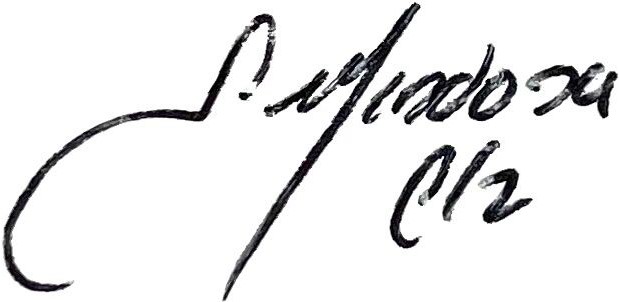 S. Mendoza
C/2